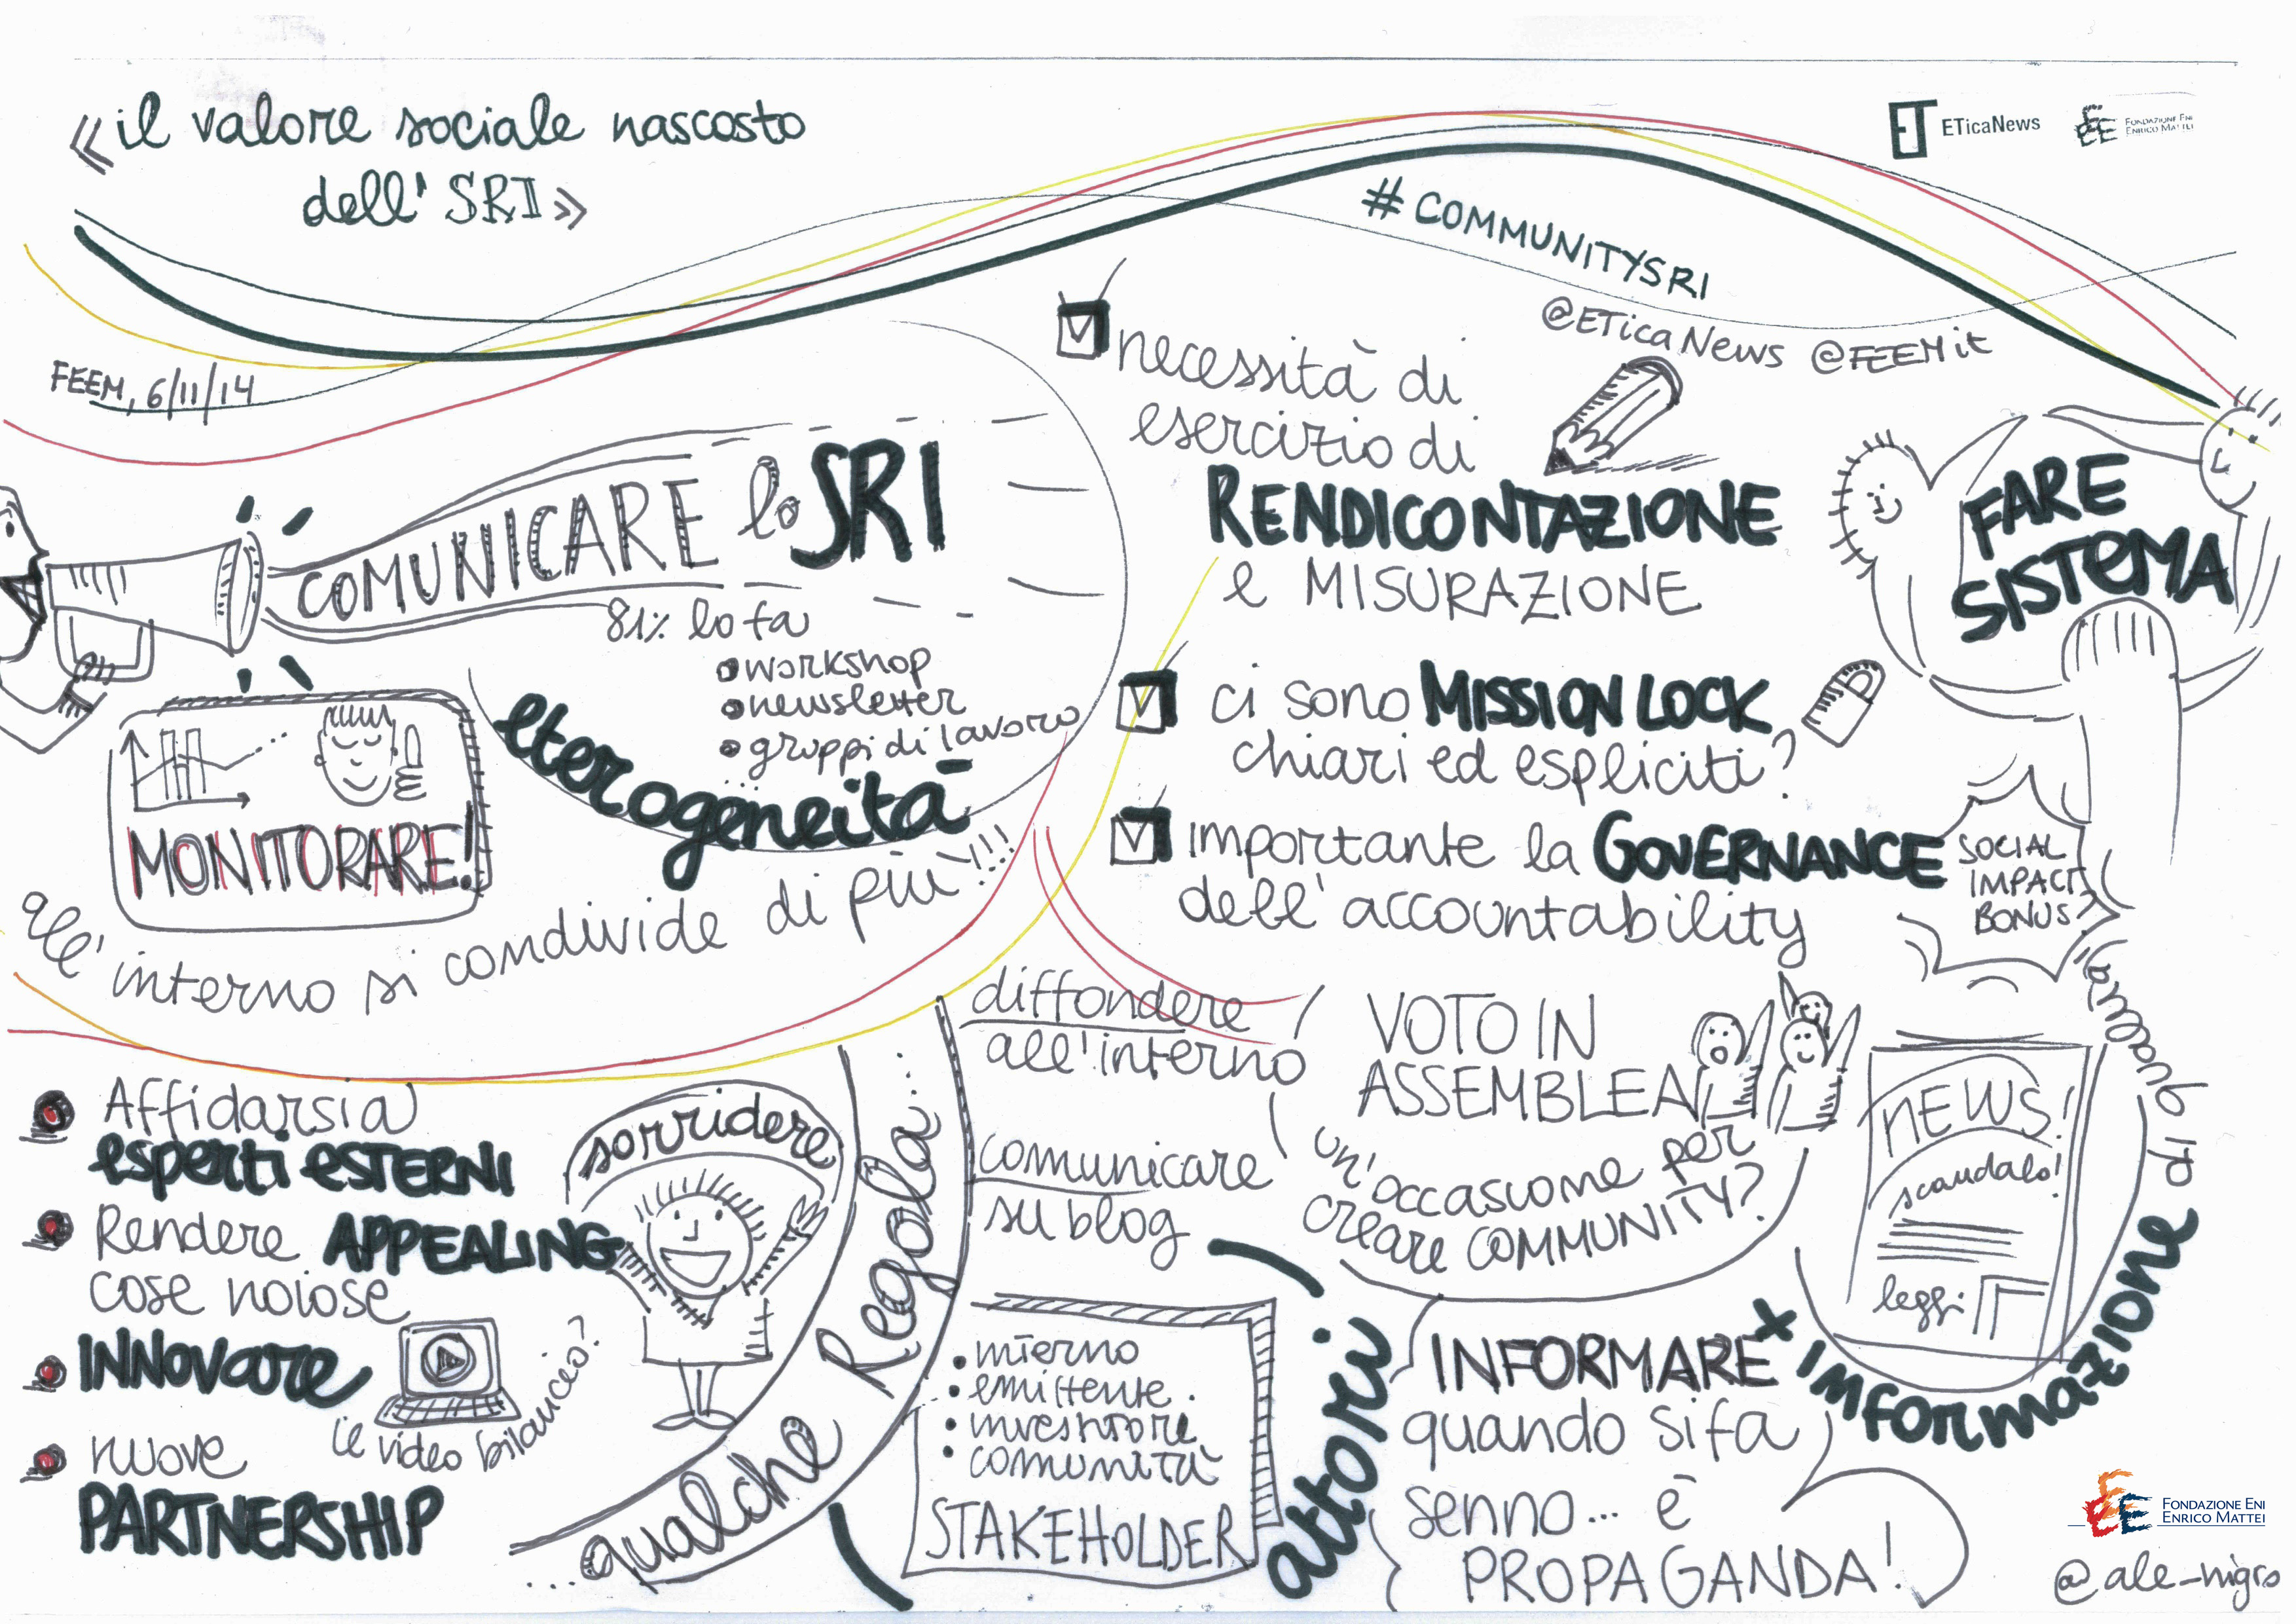 «il valore sociale nascosto
dell' SRI»
ET ETicaNews
FONDAZIONE ENI
ENRICO MATTEI
#COMMUNITYSRI
@ETicaNews @FEEMit
FEEM, 6/11/14
COMUNICARE lo SRI
81% lo fa
workshop
newsletter
gruppi di lavoro
eterogeneità
MONITORARE!
all' interno si condivide di più!!!
necessità di
esercizio di
RENDICONTAZIONE
e MISURAZIONE
ci sono MISSION LOCK
chiari ed espliciti?
importante la GOVERNANCE
dell' accountability
FARE
SISTEMA
SOCIAL
IMPACT
BONUS?
Affidarsi a
esperti ESTERNI
Rendere APPEALING
cose noiose
INNOVare
(e video bilancio?
nuove
PARTNERSHIP
sorridere
...qualche Regola...
diffondere
all'interno
comunicare
su blog
VOTO IN
ASSEMBLEA
un' occasione per
creare COMMUNITY?
• interno
• emittente
• investitore
• comunità
STAKEHOLDER
attori
INFORMARE
quando si fa
senno... è
PROPAGANDA!
NEWS!
scandalo!
leggi
+ informazione di qualità!
FONDAZIONE ENI
ENRICO MATTEI
@ale_nigro